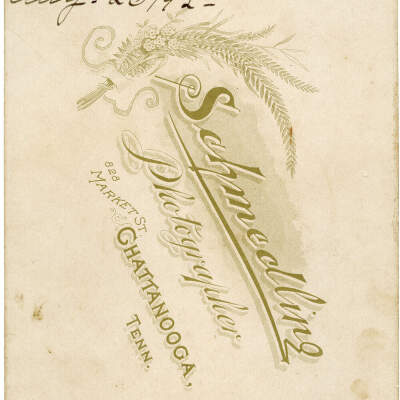 Aug. 25/92-
Schmedling
Photographer.
828
MARKET ST.
CHATTANOOGA,
TENN.